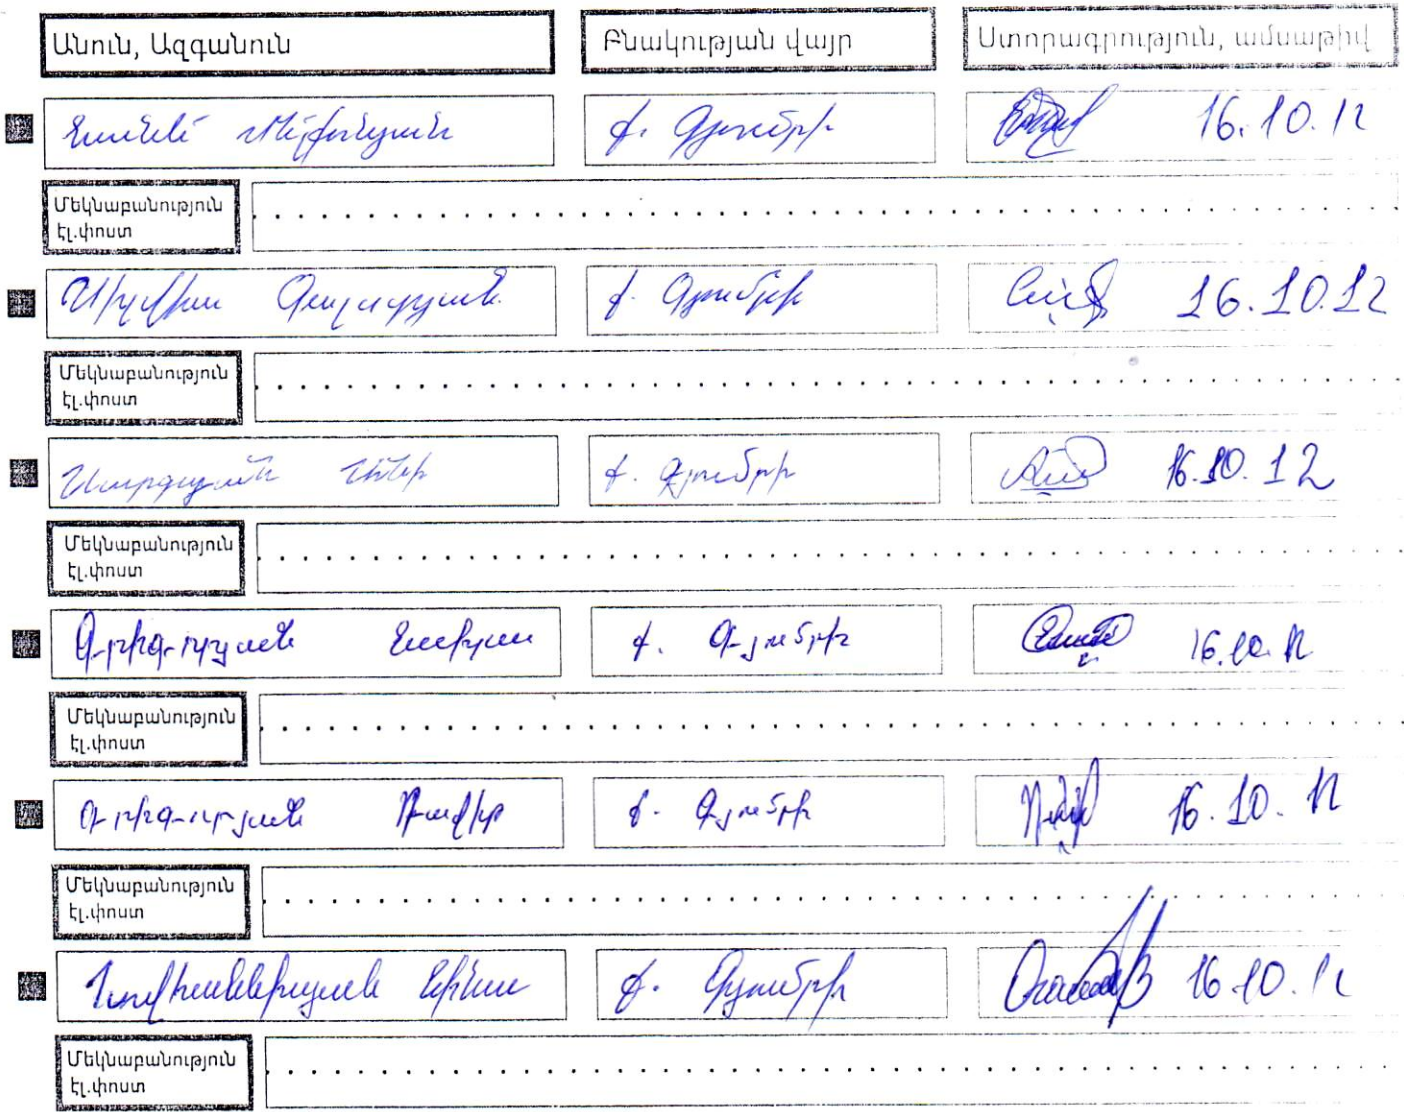 Անուն, Ազգանուն Բնակության վայր Ստորագրություն, ամսաթիվ
ք. Գյումրի 16.10.12
Մեկնաբանություն
էլ.փոստ
Սիլվիա Գալստյան ք. Գյումրի 16.10.12
Մեկնաբանություն
էլ.փոստ
Սարգսյան ք. Գյումրի 16.10.12
Մեկնաբանություն
էլ.փոստ
Գրիգորյան ք. Գյումրի 16.10.12
Մեկնաբանություն
էլ.փոստ
Գրիգորյան Դավիթ ք. Գյումրի 16.10.12
Մեկնաբանություն
էլ.փոստ
Հովհաննիսյան ք. Գյումրի 16.10.12
Մեկնաբանություն
էլ.փոստ